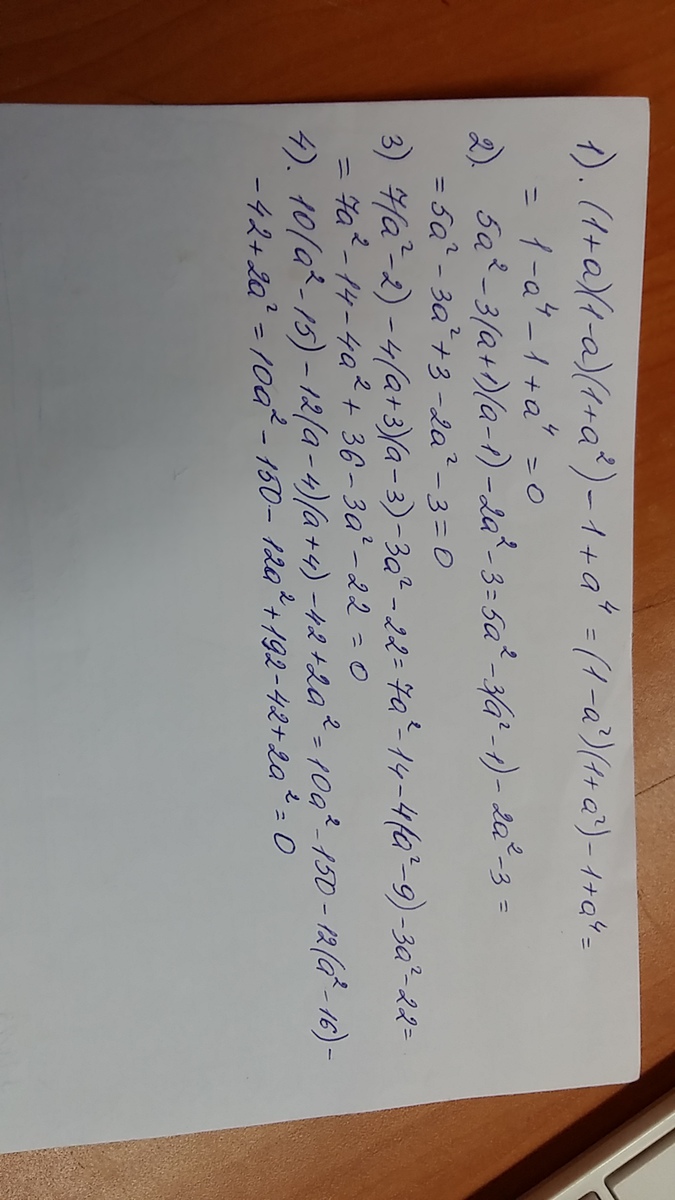 1). (1+a)(1-a)(1+a²)-1+a⁴=(1-a²)(1+a²)-1+a⁴=
= 1-a⁴-1+a⁴=0
2). 5a²-3(a+1)(a-1)-2a²-3=5a²-3(a²-1)-2a²-3=
=5a²-3a²+3-2a²-3=0
3) 7(a²-2)-4(a+3)(a-3)-3a²-22=7a²-14-4(a²-9)-3a²-22=
=7a²-14-4a²+36-3a²-22=0
4). 10(a²-15)-12(a-4)(a+4)-42+2a²=10a²-150-12(a²-16)-
-42+2a²=10a²-150-12a²+192-42+2a²=0